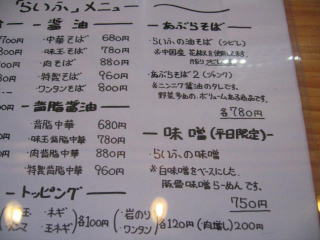 らいふ」メニュー
醤油
700円 ・中華そば 680円
800円 ・味玉そば 780円
・肉そば 880円
・特製そば 960円
・ワンタンそば 800円
背脂醤油
・背脂中華 680円
・味玉背脂中華 780円
・肉背脂中華 880円
・特製背脂中華 960円
トッピング
ネギ
玉ネギ
各100円
岩のり
ワンタン
各120円 (肉増し) 200円
あぶらそば
・らいふの油そば (シビレ)
※中国産 花椒を使用します。
・あぶらそば2 (ジャンク)
※ニンニク醤油のタレです。
野菜多めの、ボリュームある逸品です。
各780円
味噌 (平日限定)
・らいふの味噌
※白味噌をベースにした
豚骨味噌らーめんです。
750円